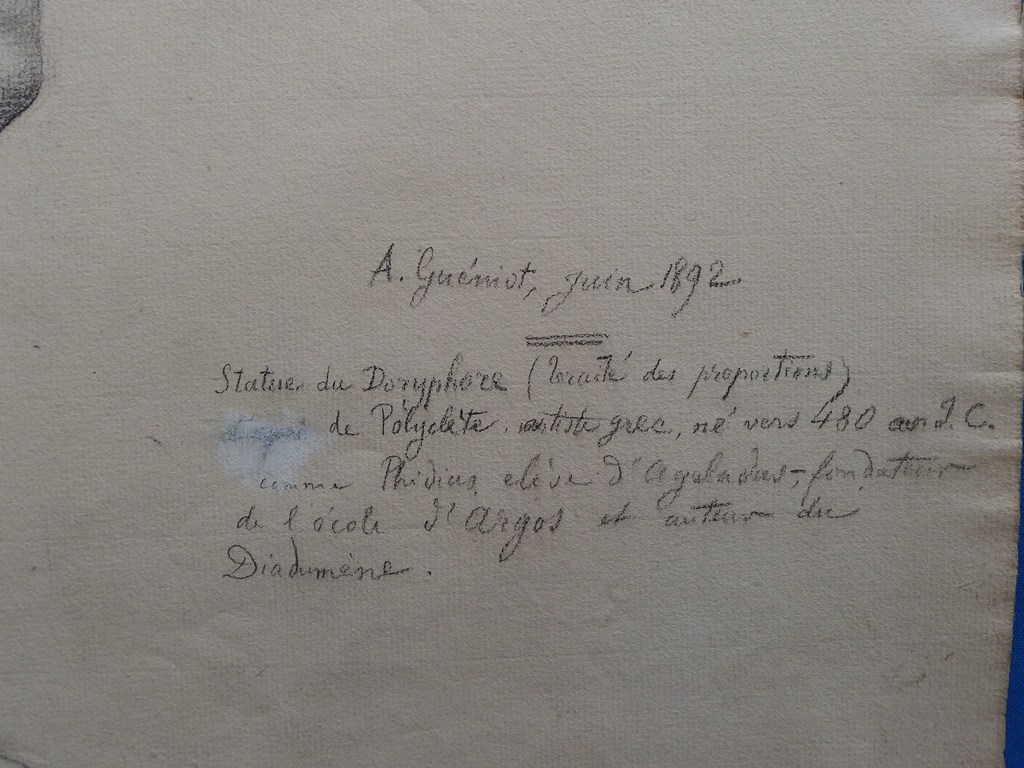 A. Guéniot, juin 1892
Statue du Doryphore (traité des proportions)
de Polyclète, artiste grec, né vers 480 av. J. C.
comme Phidias élève d'Ageladas, fondateur
de l'école d'Argos et auteur du
Diadumène.